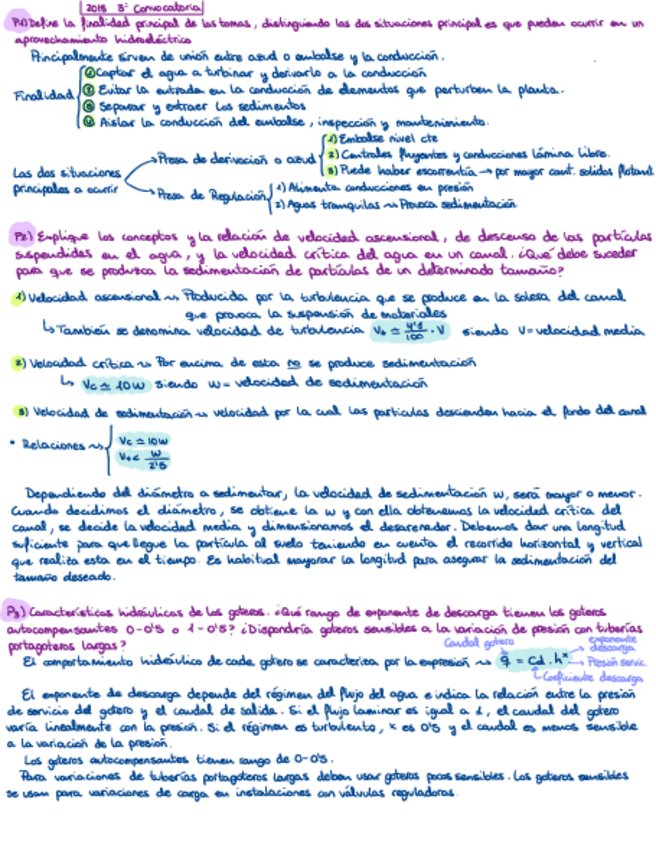 2018 3ª Convocatoria
P1) Define la finalidad principal de las tomas, distinguiendo las dos situaciones principales que pueden ocurrir en un
aprovechamiento hidroeléctrico
Principalmente sirven de unión entre azud o embalse y la conducción.
Finalidad
① Captar el agua a turbinar y derivarlo a la conducción
② Evitar la entrada en la conducción de elementos que perturben la planta.
③ Separar y extraer los sedimentos
④ Aislar la conducción del embalse, inspección y mantenimiento.
Las dos situaciones principales a ocurrir
Presa de derivación o azud
1) Embalse nivel cte
2) Centrales fluyentes y conducciones lámina libre.
3) Puede haber escorrentía → por mayor cant. solidos flotant
Presa de Regulación
1) Alimenta conducciones en presión
2) Aguas tranquilas ⇝ Provoca sedimentación
P2) Explique los conceptos y la relación de velocidad ascensional, de descenso de las partículas
suspendidas en el agua, y la velocidad crítica del agua en un canal. ¿Qué debe suceder
para que se produzca la sedimentación de partículas de un determinado tamaño?
1) Velocidad ascensional ⇝ Producida por la turbulencia que se produce en la solera del canal
que provoca la suspensión de materiales
↳ También se denomina velocidad de turbulencia V* ≃ 4'2/100 · V siendo V = velocidad media
2) Velocidad crítica ⇝ Por encima de esta no se produce sedimentación
↳ Vc ≃ 10W siendo W = velocidad de sedimentación
3) Velocidad de sedimentación ⇝ velocidad por la cual las partículas descienden hacia el fondo del canal
• Relaciones ⇝
Vc ≃ 10W
V* < W/2'5
Dependiendo del diámetro a sedimentar, la velocidad de sedimentación W, será mayor o menor.
Cuando decidimos el diámetro, se obtiene la W y con ella obtenemos la velocidad crítica del
canal, se decide la velocidad media y dimensionamos el desarenador. Debemos dar una longitud
suficiente para que llegue la partícula al suelo teniendo en cuenta el recorrido horizontal y vertical
que realiza esta en el tiempo. Es habitual mayorar la longitud para asegurar la sedimentación del
tamaño deseado.
P3) Características hidráulicas de los goteros. ¿Qué rango de exponente de descarga tienen los goteros
autocompensantes 0-0'5 o 1-0'5? ¿Dispondría goteros sensibles a la variación de presión con tuberías
portagoteros largas?
El comportamiento hidráulico de cada gotero se caracteriza por la expresión ⇝ q = Cd · h^x
Caudal gotero
exponente descarga
Presión servic.
Coeficiente descarga
El exponente de descarga depende del régimen del flujo del agua e indica la relación entre la presión
de servicio del gotero y el caudal de salida. Si el flujo laminar es igual a 1, el caudal del gotero
varía linealmente con la presión. Si el régimen es turbulento, x es 0'5 y el caudal es menos sensible
a la variación de la presión.
Los goteros autocompensantes tienen rango de 0-0'5.
Para variaciones de tuberías portagoteros largas deben usar goteros pocos sensibles. Los goteros sensibles
se usan para variaciones de carga en instalaciones con válvulas reguladoras.